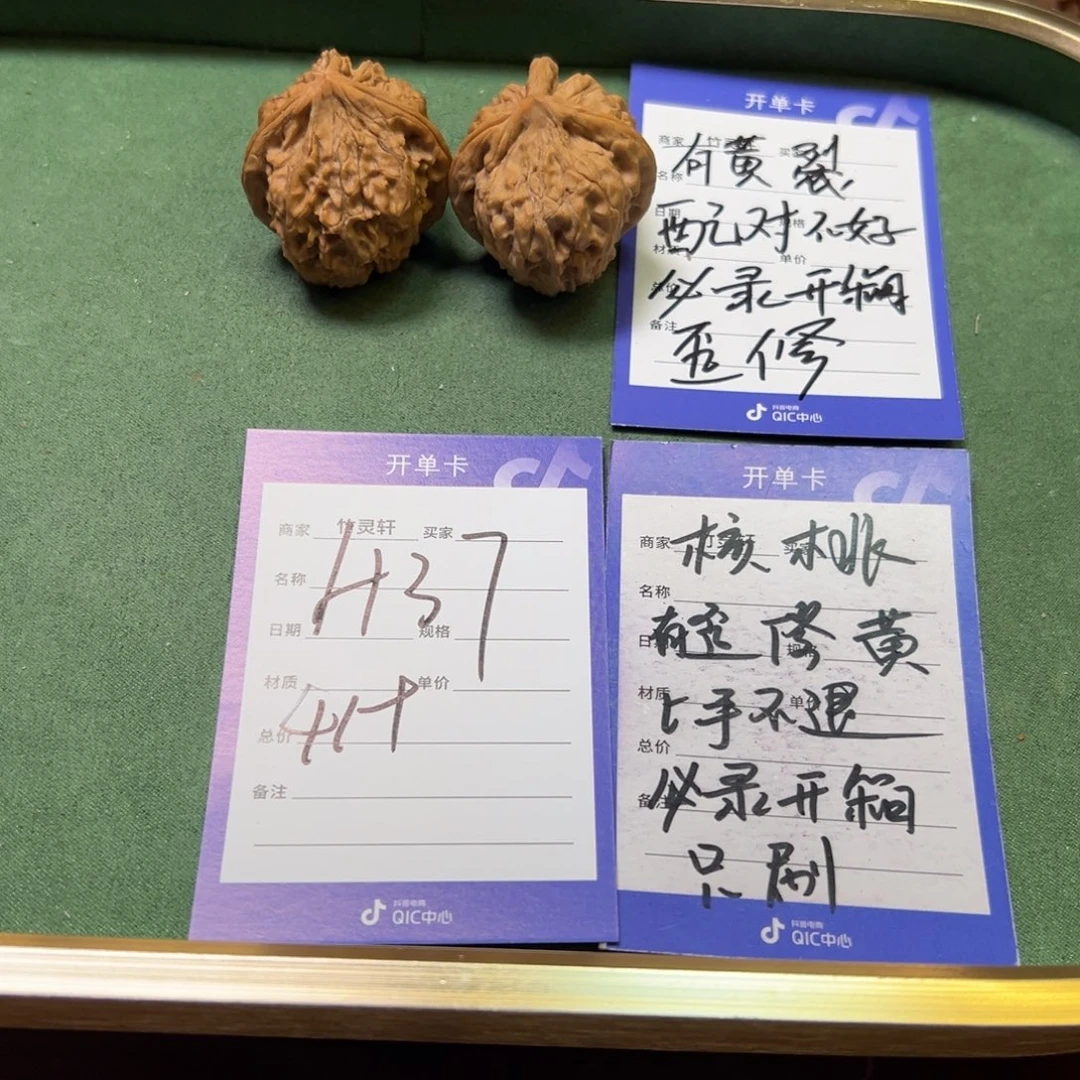 开单卡
商家 买家
有黄 裂,
名称
配对不好
材质 单价
必录开箱
备注
歪修
抖音电商
QIC中心
开单卡
商家 竹灵轩 买家
H37
名称
日期 规格
材质 单价
总价
备注
抖音电商
QIC中心
开单卡
商家
核桃
名称
有歪修黄
材质 单价
上手不退
总价
必录开箱
只刷
抖音电商
QIC中心